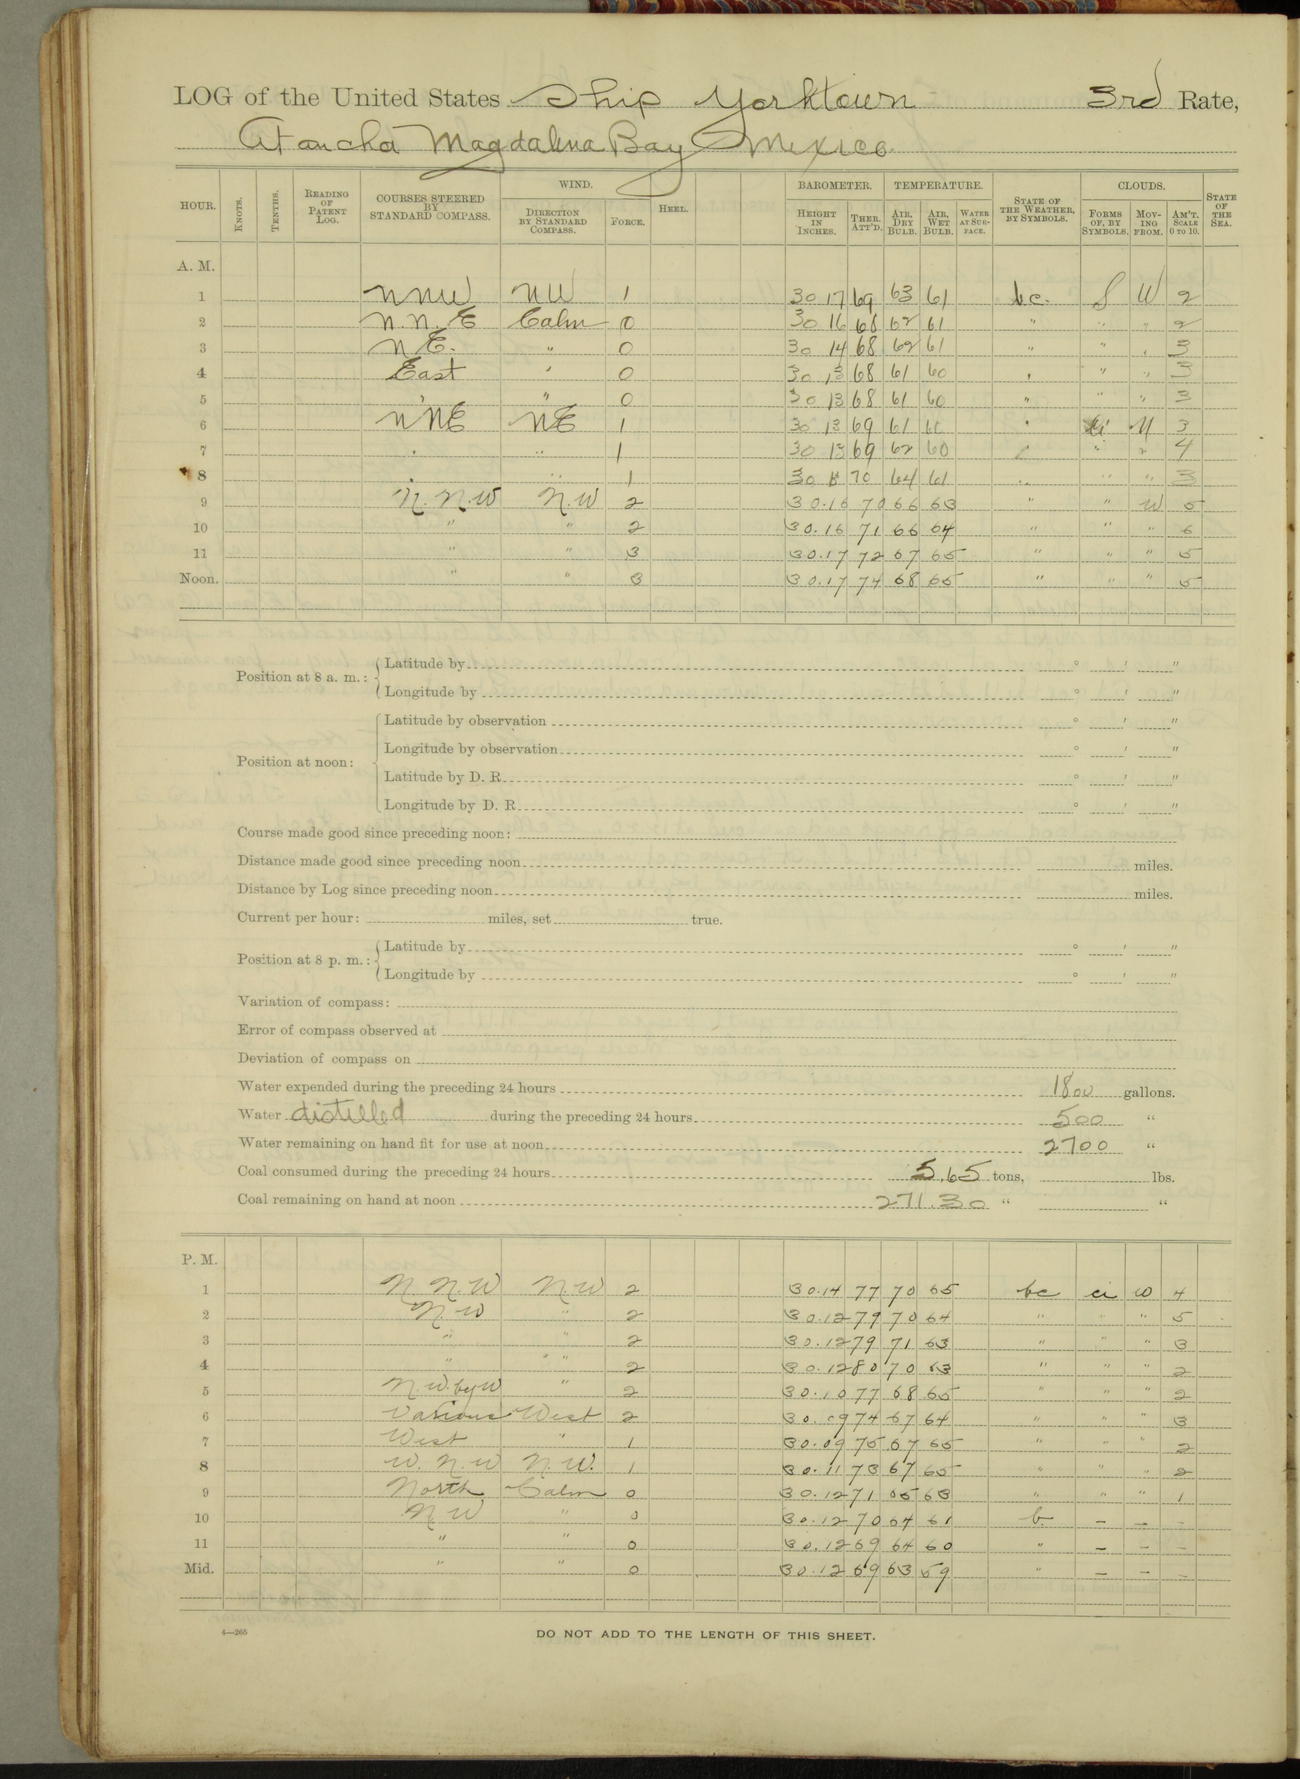 LOG of the United States Ship Yorktown 3rd Rate,
At anchor Magdalena Bay Mexico
HOUR. KNOTS. TENTHS. READING OF PATENT LOG. COURSES STEERED BY STANDARD COMPASS. WIND. DIRECTION BY STANDARD COMPASS. FORCE. HEEL. BAROMETER. HEIGHT IN INCHES. THER. ATT'D. TEMPERATURE. AIR, DRY BULB. AIR, WET BULB. WATER AT SURFACE. STATE OF THE WEATHER, BY SYMBOLS. CLOUDS. FORMS OF, BY SYMBOLS. MOVING FROM. AM'T. SCALE 0 TO 10. STATE OF THE SEA.
A. M.
1 NNW NW 1 30 17 69 63 61 b.c. S W 2
2 N.N.E Calm 0 30 16 68 62 61 " " " 2
3 N.E. " 0 30 14 68 62 61 " " " 3
4 East " 0 30 13 68 61 60 " " " 3
5 " " 0 30 13 68 61 60 " " " 3
6 N'NE NE 1 30 13 69 61 60 " 3
7 " " 1 30 13 69 62 60 " " " 4
8 " " 1 30 70 64 61 " " " 3
9 N.N.W N.W 2 30.16 70 66 63 " " W 5
10 " " 2 30.16 71 66 64 " " " 6
11 " " 3 30.17 72 67 65 " " " 5
Noon. " " 3 30.17 74 68 65 " " " 5
Position at 8 a. m.: Latitude by ° ' "
Longitude by ° ' "
Position at noon: Latitude by observation ° ' "
Longitude by observation ° ' "
Latitude by D. R. ° ' "
Longitude by D. R. ° ' "
Course made good since preceding noon:
Distance made good since preceding noon miles.
Distance by Log since preceding noon miles.
Current per hour: miles, set true.
Position at 8 p. m.: Latitude by ° ' "
Longitude by ° ' "
Variation of compass:
Error of compass observed at
Deviation of compass on
Water expended during the preceding 24 hours 1800 gallons.
Water distilled during the preceding 24 hours 500 "
Water remaining on hand fit for use at noon 2700 "
Coal consumed during the preceding 24 hours 5.65 tons, lbs.
Coal remaining on hand at noon 271.30 " "
P. M.
1 N.N.W N.W 2 30.14 77 70 65 bc ci W 4
2 N.W " 2 30.12 79 70 64 " " " 5
3 " " 2 30.12 79 71 63 " " " 3
4 " " 2 30.12 80 70 63 " " " 2
5 N.W. by W " 2 30.10 77 68 65 " " " 2
6 Various West 2 30.09 74 67 64 " " " 3
7 West " 1 30.09 75 67 65 " " " 2
8 W.N.W N.W. 1 30.11 73 67 65 " " " 2
9 North Calm 0 30.12 71 65 63 " " " 1
10 N W " 0 30.12 70 64 61 b. – – –
11 " " 0 30.12 69 64 60 " – – –
Mid. " " 0 30.12 69 63 59 " – – –
4—265
DO NOT ADD TO THE LENGTH OF THIS SHEET.